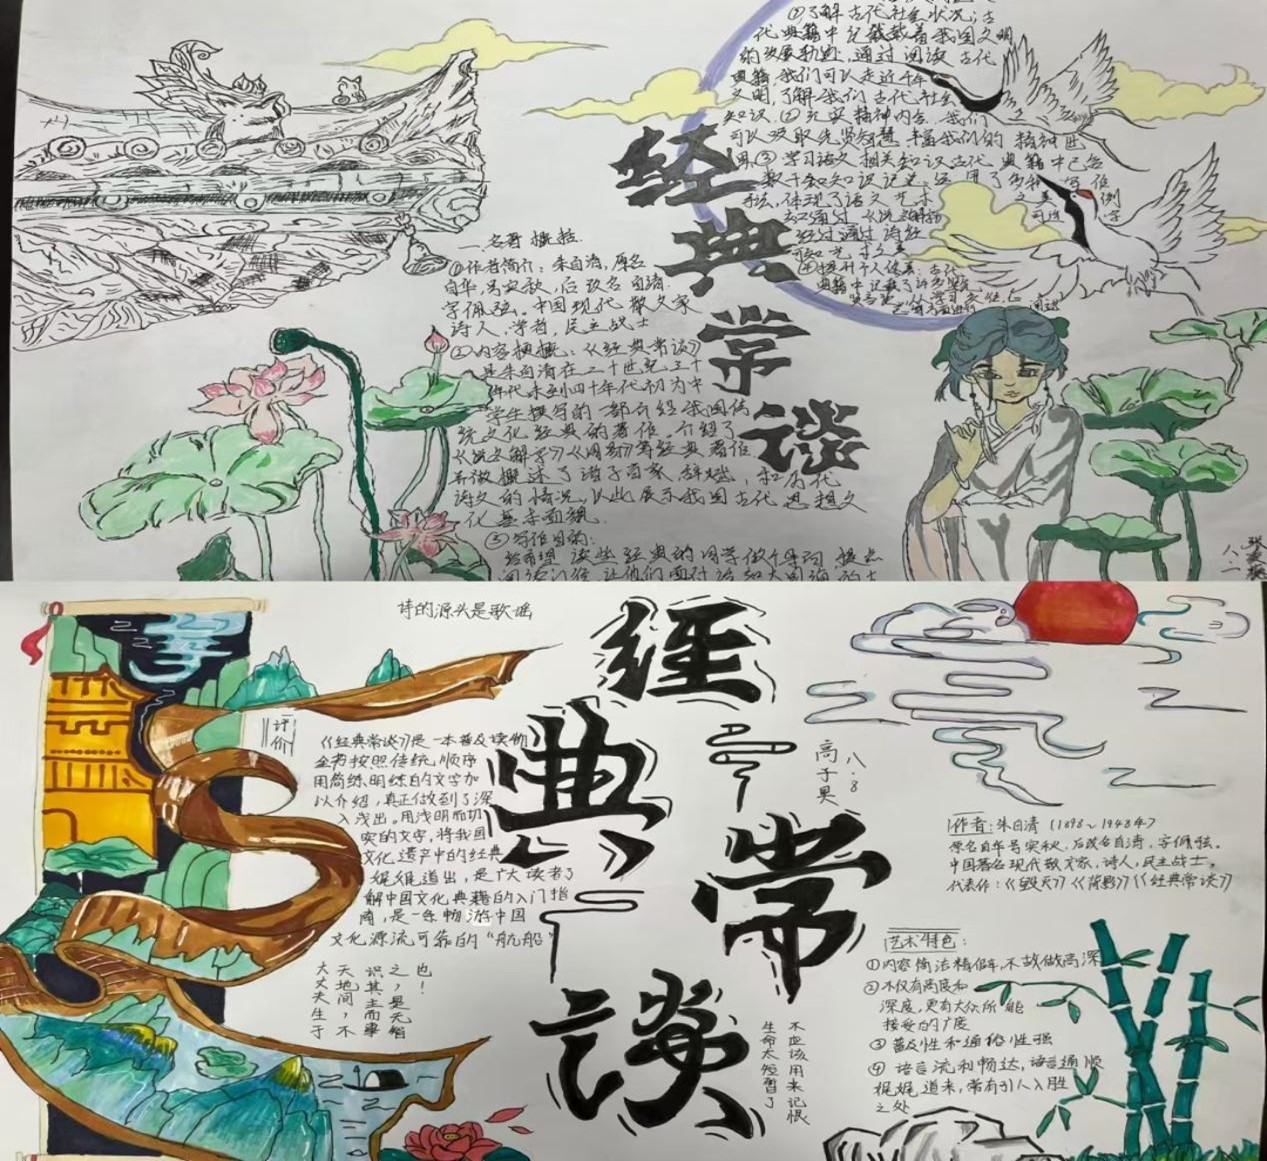 ①了解古代社会状况：古
代典籍中记载着我国文明
的发展轨迹，通过阅读古代
典籍，我们可以走近千年
文明，了解我们古代社会
知识。②充实精神内含，我们
可以汲取先贤智慧，丰富我们的精神世
界③学习语文相关知识古代典籍中已含
经
典
常
谈
一、名著概括
①作者简介：朱自清，原名
自华，号实秋，后改名自清，
字佩弦。中国现代散文家
诗人，学者，民主战士
②内容梗概：《经典常谈》
是朱自清在二十世纪三十
年代末到四十年代初为中
学生撰写的一部介绍我国传
统文化经典的著作。介绍了
《说文解字》《周易》等经典著作
并概述了诸子百家，辞赋，和历代
诗文的情况，以此展示我国古代思想文
化基本面貌。
③写作目的：
八、二
诗的源头是歌谣
經
典
常
谈
评价
《经典常谈》是一本普及读物
全书按照传统顺序
用简练明练白的文字加
以介绍，真正做到了深
入浅出。用浅明而切
实的文字，将我国
文化遗产中的经典
娓娓道出，是广大读者了
解中国文化典籍的入门指
南，是一条畅游中国
文化源流可靠的“航船”
大丈夫生于
天地间
识其主而
之，是无
也！
不应该用来记恨
生命太短暂了
八.8
高子昊
作者：朱自清（1898～1948年）
原名自华号实秋，后改名自清，字佩弦。
中国著名现代散文家，诗人，民主战士。
代表作：《毁灭》《背影》《经典常谈》
艺术特色：
①内容简洁精僻，不故做高深
②不仅有高度和
深度，更有大众所能
接受的广度
③普及性和通俗性强
④语言流利畅达，语言通顺
娓娓道来，常有引人入胜
之处